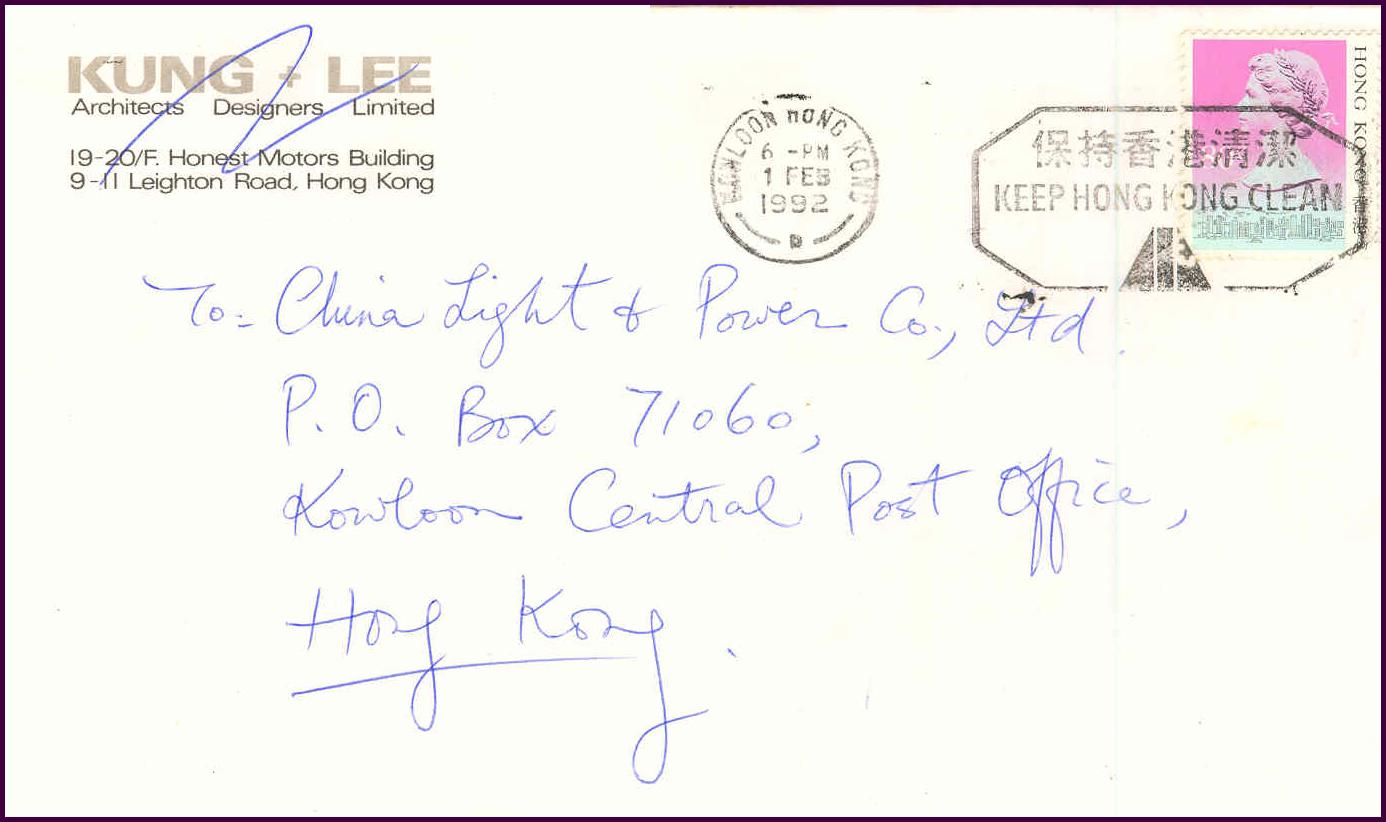 KUNG + LEE
Architects Designers Limited
19-20/F. Honest Motors Building
9-11 Leighton Road, Hong Kong
KOWLOON HONG KONG
6 -PM
1 FEB
1992
保持香港清潔
KEEP HONG KONG CLEAN
HONG KONG 香港
To: China Light & Power Co., Ltd.
P.O. Box 71060,
Kowloon Central Post Office,
Hong Kong.